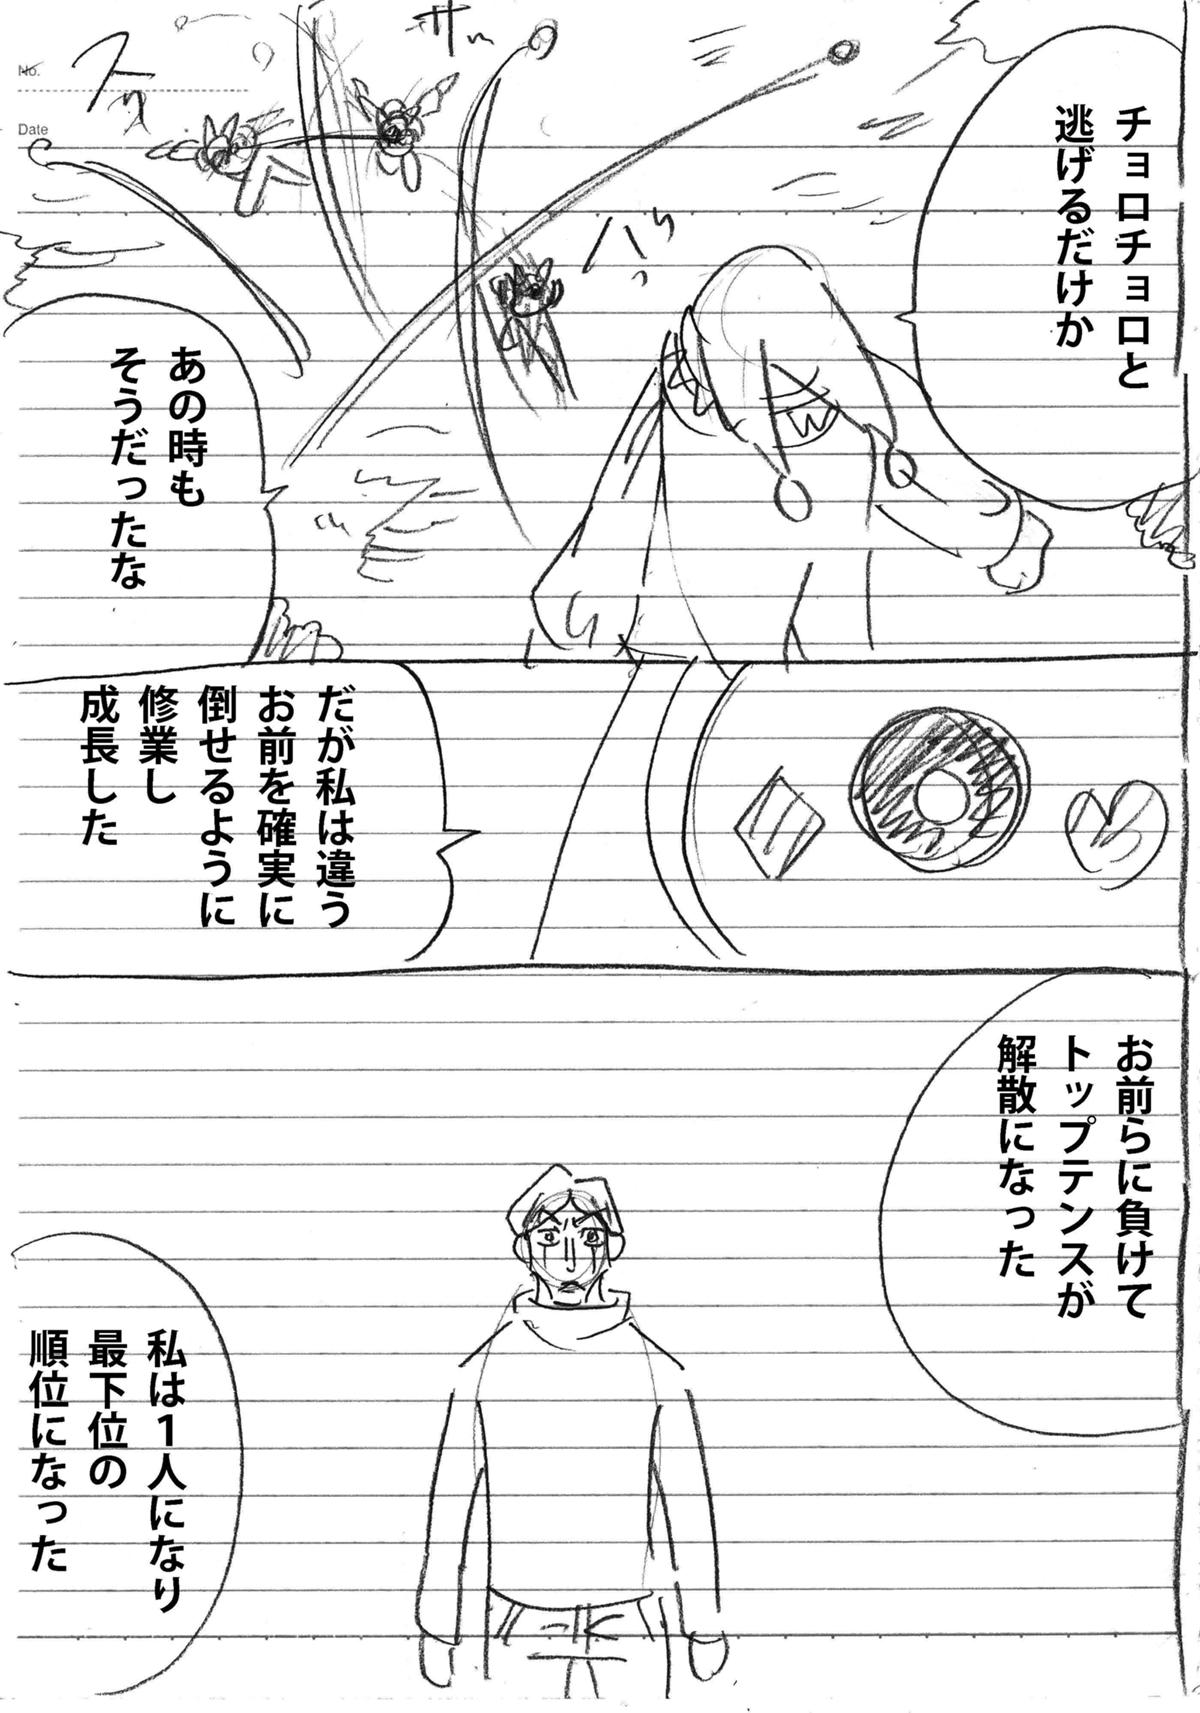 No.
Date
チョロチョロと
逃げるだけか
あの時も
そうだったな
だが私は違う
お前を確実に
倒せるように
修業し
成長した
お前らに負けて
トップテンスが
解散になった
私は1人になり
最下位の
順位になった